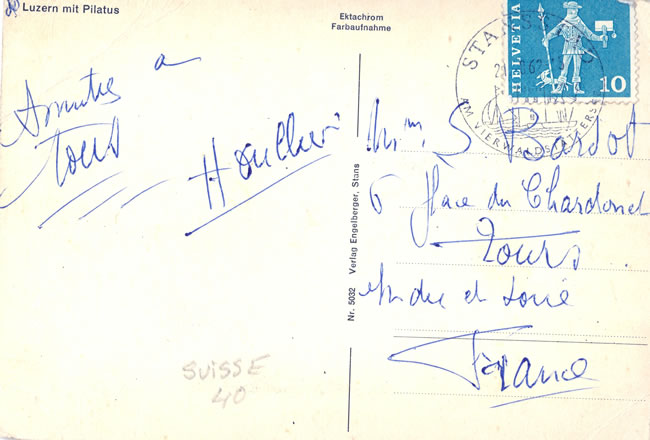 Luzern mit Pilatus
Ektachrom
Farbaufnahme
Amitiés a
Tous
HELVETIA
10
STANS
AM VIERWALDSTÄTTERSEE
S Bardot
6 place du Chardonnet
Tours
Indre et Loire
France
Nr. 5032 Verlag Engelberger, Stans
SUISSE
40